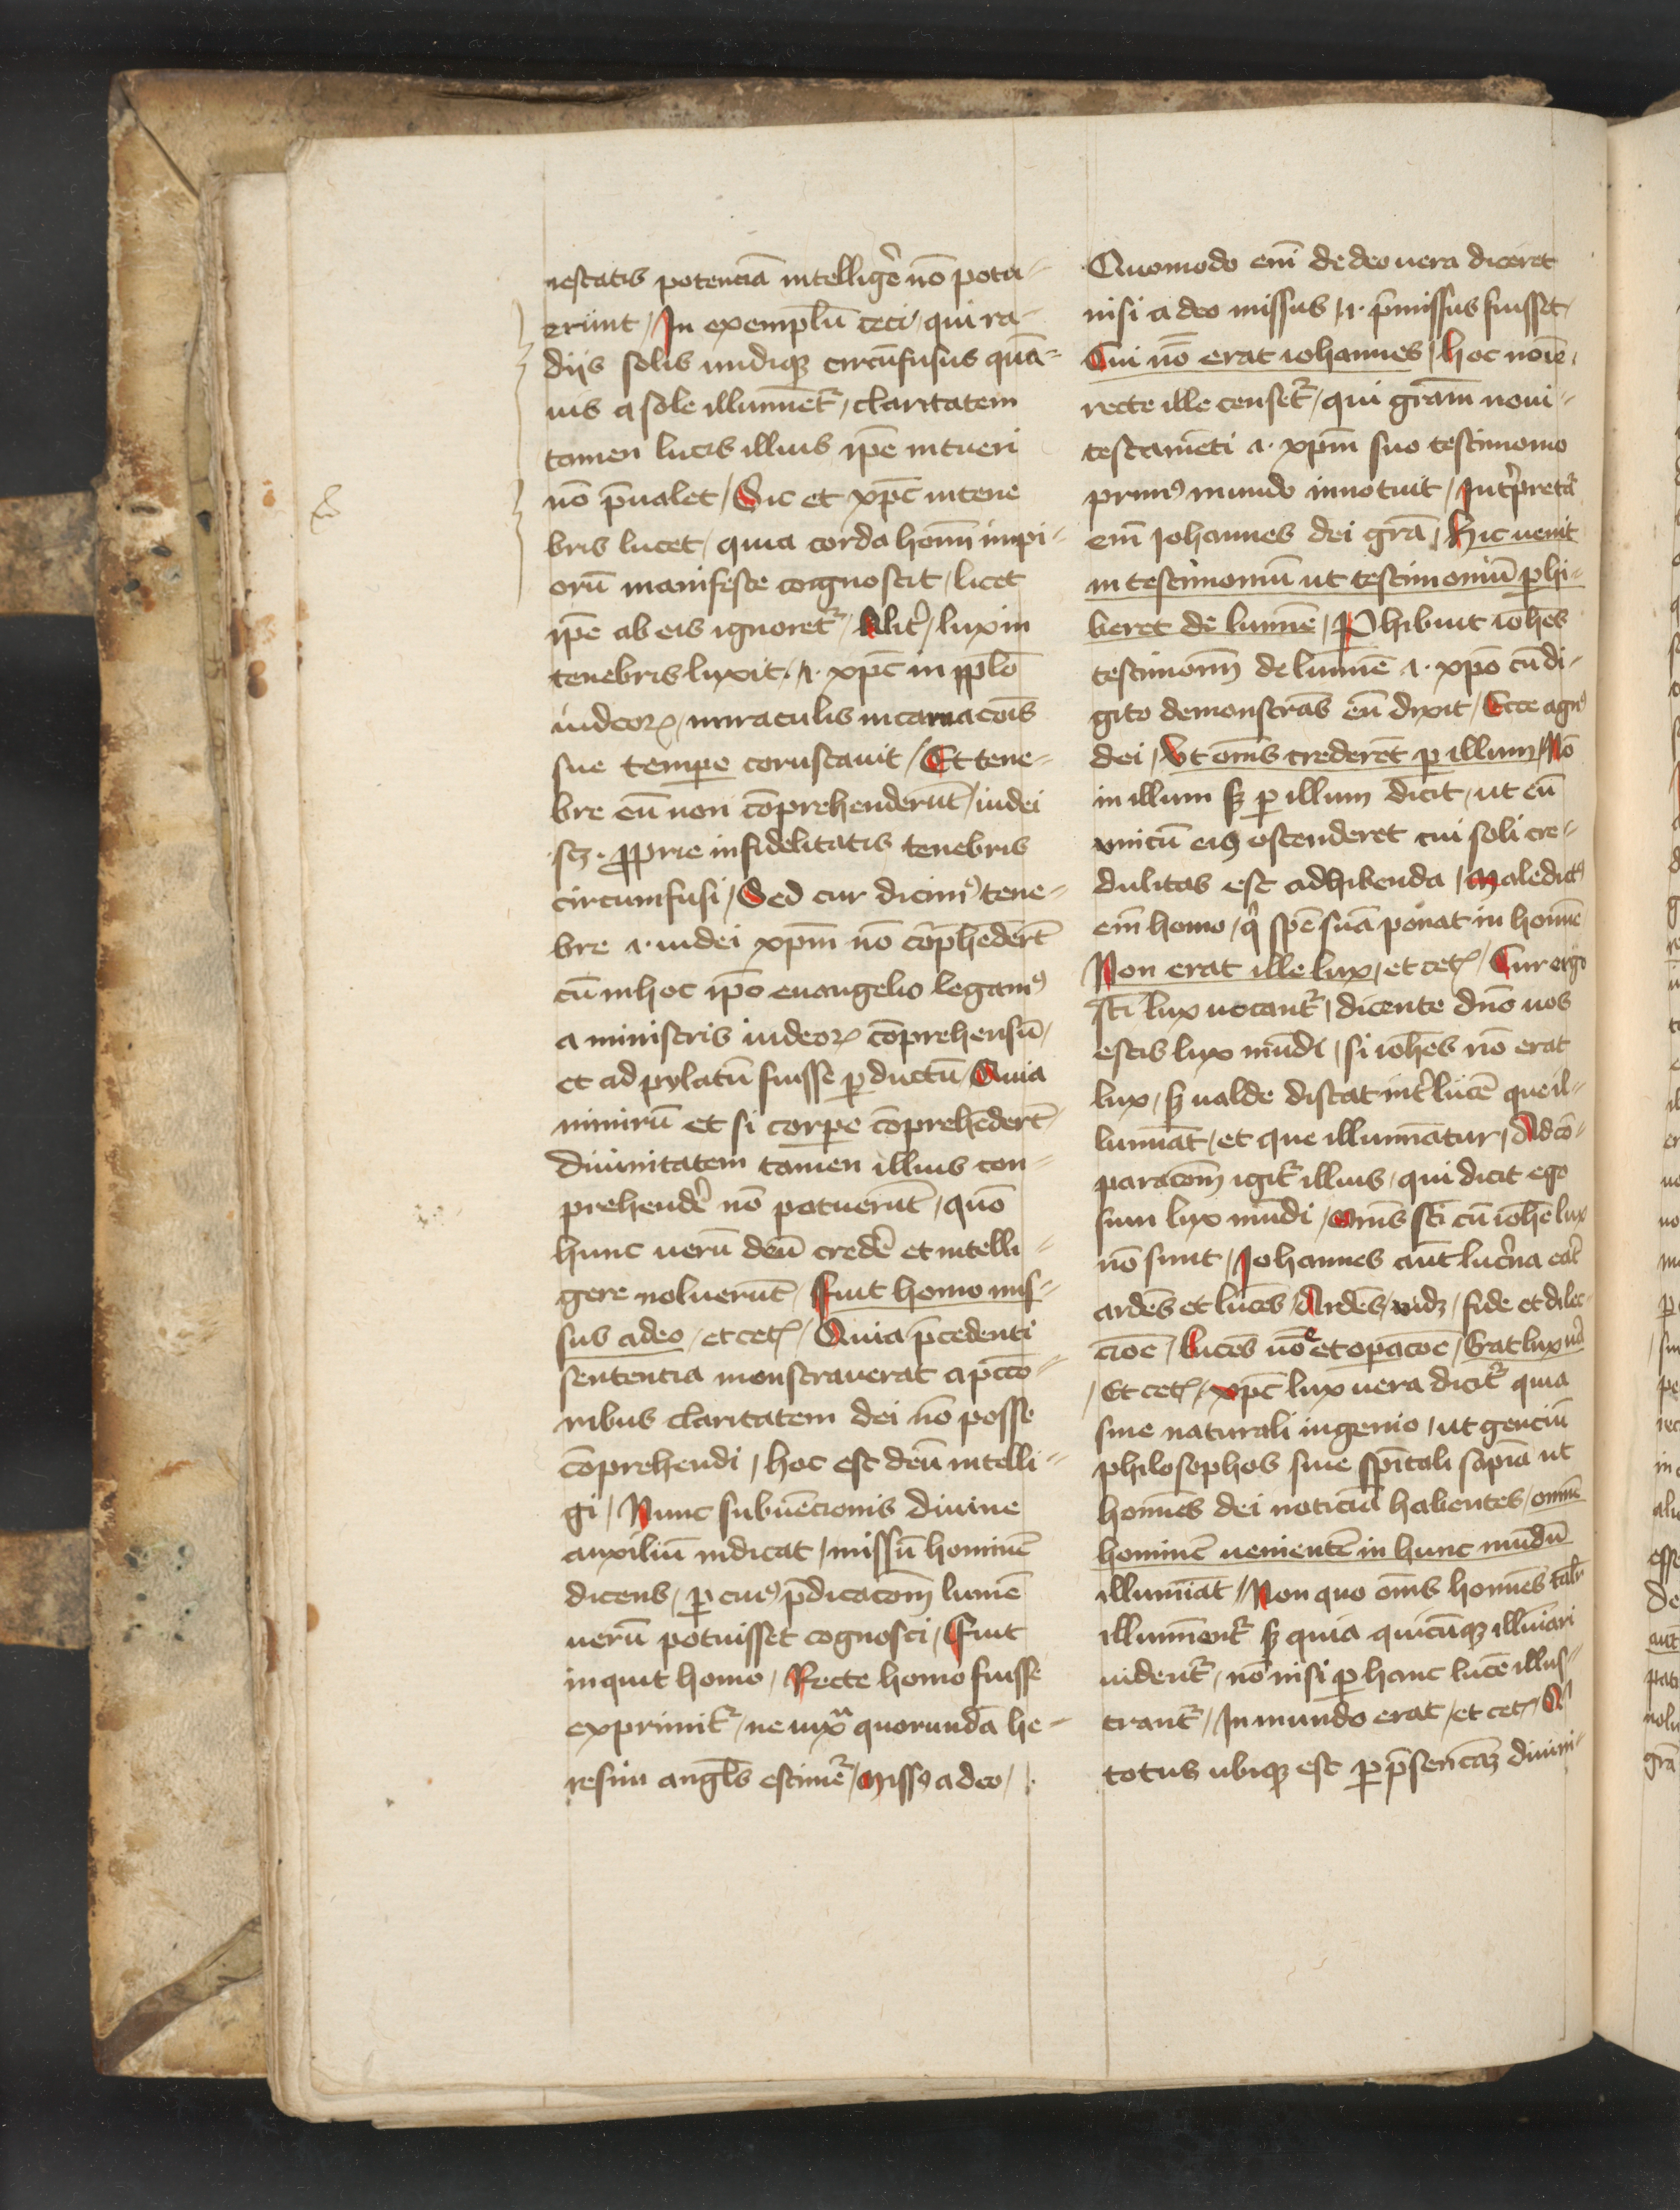 iestatis potenciā intelligẽ nō potu-
erunt / In exemplū ceci / qui ra-
diis solis undiqꝫ circūfusus quā-
uis a sole illumīet᷑ / claritatem
tamen lucis illius ip̄e intueri
nō p̄ualet / Sic et xp̄c in tene
bris lucet / quia corda hom̄ impi-
orū manifeste congnoscit / licet
ip̄e ab eis ignoret᷑ / Alit̾ / lux in
tenebris luxit .i. xp̄c in pp̄lo
iudeoꝝ / miraculis incarnacōis
sue tempe coruscauit / Et tene-
bre eū non cōprehenderūt / iudei
.scꝫ. ꝓprie infidelitatis tenebris
circumfusi / Sed cur dicimꝰ tene-
bre .i. iudei xp̄m nō cōp̄hēdert̄
cū in hoc ip̄o euangelio legamꝰ
a ministris iudeoꝝ cōprehensū /
et ad pylatū fuisse ꝑductū / Quia
nimirū et si corpe cōprehēdert̄ /
diuinitatem tamen illius con-
prehendẽ nō potuerūt / quō
hunc uerū deū credẽ et intelli-
gere noluerūt / Fuit homo mis-
sus a deo / et cetꝭ / Quia p̄cedenti
sententia monstrauerat a pctō-
ribus claritatem dei nō posse
cōprehendi / hoc est deū intelli-
gi / Nunc subuēcionis diuine
auxiliū indicat / missū hominē
dicens / ꝑ cuiꝰ p̄dicacōm lumē
uerū potuisset cognosci / Fuit
inquit homo / Recte homo fuisse
exprimit᷑ / ne iuxᵃ quorundā he-
resim angl̄s estimet᷑ / Missꝰ a deo /
Quomodo em̄ de deo uera diceret
nisi a deo missus / .i. p̄missus fuisset /
Cui nō erat iohannes / hoc noīe
recte ille censet᷑ / qui grām noui-
testamēti .i. xp̄m suo testimonio
primꝰ mundo innotuit / Int̾pretat᷑
em̄ Iohannes dei grā / Hic uenit
in testimoniū ut testimoniū ꝑhi-
beret de lumīe / Phibuit ioh̄es
testimoniū de lumīe .i. xp̄o cū di-
gito demonstrās eū dixit / Ecce agnꝰ
dei / Vt om̄s crederēt ꝑ illum / Nō
in illum sꝫ ꝑ illum dicit / ut eū
vnicū eiꝰ ostenderet cui soli cre-
dulitas est adhibenda / Maledictꝰ
em̄ homo / q̾ spē suā ponat in homīe
Non erat ille lux / et cetꝭ / Cur ergo
sc̄i lux uocant᷑ / dicente dn̄o uos
estis lux mūdi / si ioh̄es nō erat
lux / sꝫ ualde distat int̾ lucē que il-
lumīat / et que illumīatur / Ad cō-
paracōm igit᷑ illius / qui dicit ego
sum lux mūdi / om̄s sc̄i cū ioh̄e lux
nō sunt / Iohannes aūt luc̾na erat
ardēs et lucēs / Ardēs / uidꝫ / fide et dilec-
cioē / lucēs uōe et opacoē / Erat lux u̾a
/ Et cetꝭ / xp̄c lux uera dicit᷑ quia
siue naturali ingenio / ut genciū
philosophos siue spīrtali sapīa ut
homīes dei noticiā habentes / omnē
hominē uenientē in hunc mūdū
illumīat / Non quo om̄s homīes talr̄
illumīent᷑ sꝫ quia quicūqꝫ illuīari
uident᷑ / nō nisi ꝑ hanc lucē illus-
trant᷑ / In mundo erat / et cetꝭ / Qⁱ
totus ubiqꝫ est ꝑ p̄sencīaꝫ diuini-